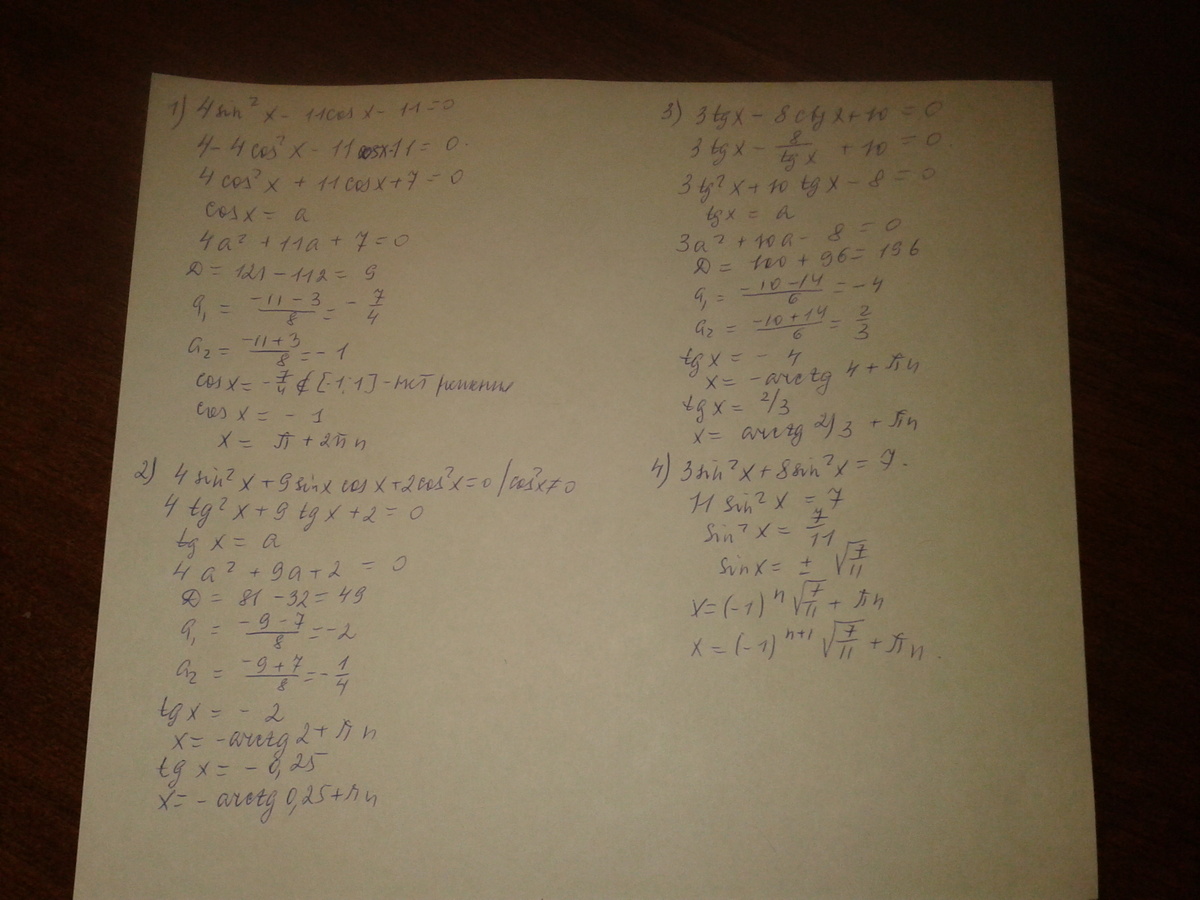 1) 4 sin² x - 11 cos x - 11 = 0
4 - 4 cos² x - 11 cosx - 11 = 0.
4 cos² x + 11 cosx + 7 = 0
cos x = a
4a² + 11a + 7 = 0
D = 121 - 112 = 9
a₁ = (-11 - 3)/8 = - 7/4
a₂ = (-11 + 3)/8 = - 1
cosx = - 7/4 ∉ [-1; 1] - нет решения
cos x = - 1
x = π + 2πn
2) 4 sin² x + 9 sinx cos x + 2cos² x = 0 / cos²x ≠ 0
4 tg² x + 9 tg x + 2 = 0
tg x = a
4 a² + 9a + 2 = 0
D = 81 - 32 = 49
a₁ = (-9 - 7)/8 = - 2
a₂ = (-9 + 7)/8 = - 1/4
tg x = - 2
x = - arctg 2 + πn
tg x = - 0,25
x = - arctg 0,25 + πn
3) 3 tgx - 8 ctgx + 10 = 0
3 tgx - 8/tgx + 10 = 0.
3 tg² x + 10 tgx - 8 = 0
tgx = a
3a² + 10a - 8 = 0
D = 100 + 96 = 196
a₁ = (-10 - 14)/6 = - 4
a₂ = (-10 + 14)/6 = 2/3
tgx = - 4
x = - arctg 4 + πn
tgx = 2/3
x = arctg 2/3 + πn
4) 3 sin² x + 8 sin² x = 7.
11 sin² x = 7
sin² x = 7/11
sinx = ± √7/11
x = (-1)ⁿ √7/11 + πn
x = (-1)ⁿ⁺¹ √7/11 + πn.